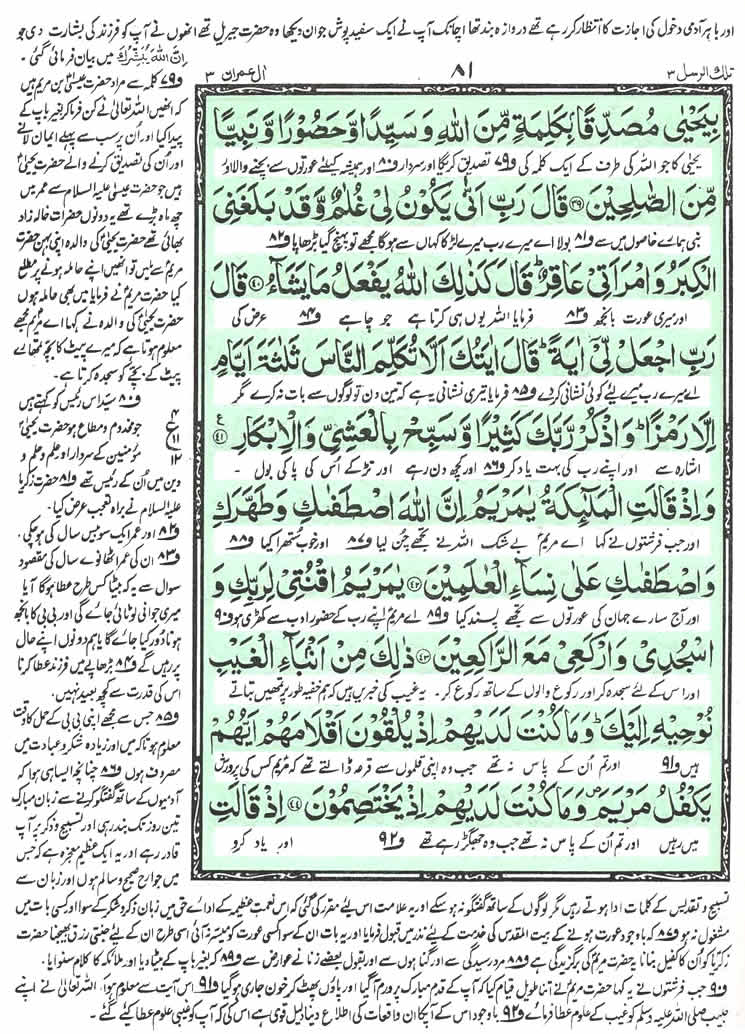 اور باہر آدمی دخول کی اجازت کا انتظار کر رہے تھے دروازہ بند تھا اچانک آپ نے ایک سفید پوش جوان دیکھا وہ حضرت جبریل تھے انھوں نے آپ کو فرزند کی بشارت دی جو
اِنَّ اللهَ يُبَشِّرُكَ میں بیان فرمائی گئی۔
تلك الرسل ٣
٨١
اٰل عمرٰن ٣
بِيَحْيٰى مُصَدِّقًۢا بِكَلِمَةٍ مِّنَ اللهِ وَسَيِّدًا وَّحَصُوْرًا وَّنَبِيًّا
یحیٰی کا جو اللہ کی طرف کے ایک کلمہ کی و۷۹ تصدیق کرے گا اور سردار و۸۰ اور ہمیشہ کیلئے عورتوں سے بچنے والا اور
مِّنَ الصّٰلِحِيْنَ ۞٣٩ قَالَ رَبِّ اَنّٰى يَكُوْنُ لِيْ غُلٰمٌ وَّقَدْ بَلَغَنِيَ
نبی ہمارے خاصوں میں سے و۸۱ بولا اے میرے رب میرے لڑکا کہاں سے ہوگا مجھے تو پہنچ گیا بڑھاپا و۸۲
الْكِبَرُ وَامْرَاَتِيْ عَاقِرٌ ؕ قَالَ كَذٰلِكَ اللهُ يَفْعَلُ مَا يَشَآءُ ۞٤٠ قَالَ
اور میری عورت بانجھ و۸۳ فرمایا اللہ یوں ہی کرتا ہے جو چاہے و۸۴ عرض کی
رَبِّ اجْعَلْ لِّيْۤ اٰيَةً ؕ قَالَ اٰيَتُكَ اَلَّا تُكَلِّمَ النَّاسَ ثَلٰثَةَ اَيَّامٍ
اے میرے رب میرے لیے کوئی نشانی کر دے و۸۵ فرمایا تیری نشانی یہ ہے کہ تین دن تو لوگوں سے بات نہ کرے مگر
اِلَّا رَمْزًا ؕ وَاذْكُرْ رَّبَّكَ كَثِيْرًا وَّسَبِّحْ بِالْعَشِيِّ وَالْاِبْكَارِ ۞٤١
اشارہ سے اور اپنے رب کی بہت یاد کر و۸۶ اور کچھ دن رہے اور تڑکے اس کی پاکی بول۔
وَاِذْ قَالَتِ الْمَلٰٓئِكَةُ يٰمَرْيَمُ اِنَّ اللهَ اصْطَفٰىكِ وَطَهَّرَكِ
اور جب فرشتوں نے کہا اے مریم بے شک اللہ نے تجھے چن لیا و۸۷ اور خوب ستھرا کیا و۸۸
وَاصْطَفٰىكِ عَلٰى نِسَآءِ الْعٰلَمِيْنَ ۞٤٢ يٰمَرْيَمُ اقْنُتِيْ لِرَبِّكِ وَ
اور آج سارے جہان کی عورتوں سے تجھے پسند کیا و۸۹ اے مریم اپنے رب کے حضور ادب سے کھڑی ہو و۹۰
اسْجُدِيْ وَارْكَعِيْ مَعَ الرّٰكِعِيْنَ ۞٤٣ ذٰلِكَ مِنْ اَنْۢبَآءِ الْغَيْبِ
اور اس کے لئے سجدہ کر اور رکوع والوں کے ساتھ رکوع کر۔ یہ غیب کی خبریں ہیں کہ ہم خفیہ طور پر تمھیں بتاتے
نُوْحِيْهِ اِلَيْكَ ؕ وَمَا كُنْتَ لَدَيْهِمْ اِذْ يُلْقُوْنَ اَقْلَامَهُمْ اَيُّهُمْ
ہیں و۹۱ اور تم ان کے پاس نہ تھے جب وہ اپنی قلموں سے قرعہ ڈالتے تھے کہ مریم کس کی پرورش
يَكْفُلُ مَرْيَمَ ۪ وَمَا كُنْتَ لَدَيْهِمْ اِذْ يَخْتَصِمُوْنَ ۞٤٤ اِذْ قَالَتِ
میں رہیں اور تم ان کے پاس نہ تھے جب وہ جھگڑ رہے تھے و۹۲ اور یاد کرو
و۷۹ کلمہ سے مراد حضرت عیسیٰ بن مریم ہیں
کہ انھیں اللہ تعالٰی نے کن فرما کر بغیر باپ کے
پیدا کیا اور ان پر سب سے پہلے ایمان لانے
اور ان کی تصدیق کرنے والے حضرت یحییٰ
ہیں جو حضرت عیسیٰ علیہ السلام سے عمر میں
چھ ماہ بڑے تھے یہ دونوں حضرات خالہ زاد
بھائی تھے حضرت یحییٰ کی والدہ اپنی بہن حضرت
مریم سے ملیں تو انھیں اپنے حاملہ ہونے پر مطلع
کیا حضرت مریم نے فرمایا میں بھی حاملہ ہوں
حضرت یحییٰ کی والدہ نے کہا اے مریم مجھے
معلوم ہوتا ہے کہ میرے پیٹ کا بچہ تمھارے
پیٹ کے بچے کو سجدہ کرتا ہے۔
و۸۰ سید اس رئیس کو کہتے ہیں
جو مخدوم و مطاع ہو حضرت یحییٰ
مؤمنین کے سردار اور علم و حلم و
دین میں ان کے رئیس تھے و۸۱ حضرت زکریا
علیہ السلام نے براہ تعجب عرض کیا۔
و۸۲ اور عمر ایک سو بیس سال کی ہو چکی۔
و۸۳ ان کی عمر اٹھانوے سال کی مقصود
سوال سے یہ کہ بیٹا کس طرح عطا ہوگا آیا
میری جوانی لوٹائی جائے گی اور بی بی کا بانجھ
ہونا دور کیا جائے گا یا ہم دونوں اپنے حال
پر رہیں گے و۸۴ بڑھاپے میں فرزند عطا کرنا
اس کی قدرت سے کچھ بعید نہیں۔
و۸۵ جس سے مجھے اپنی بی بی کے حمل کا وقت
معلوم ہو تاکہ میں اور زیادہ شکر و عبادت میں
مصروف ہوں و۸۶ چنانچہ ایسا ہی ہوا کہ
آدمیوں کے ساتھ گفتگو کرنے سے زبان مبارک
تین روز تک بند رہی اور تسبیح و ذکر پر آپ
قادر رہے اور یہ ایک عظیم معجزہ ہے کہ جس
میں جوارح صحیح و سالم ہوں اور زبان سے
تسبیح و تقدیس کے کلمات ادا ہوتے رہیں مگر لوگوں کے ساتھ گفتگو نہ ہو سکے اور یہ علامت اس لیے مقرر کی گئی کہ اس نعمت عظیمہ کے ادائے حق میں زبان ذکر و شکر کے سوا اور کسی بات میں
مشغول نہ ہو و۸۷ کہ باوجود عورت ہونے کے بیت المقدس کی خدمت کے لئے نذر میں قبول فرمایا اور یہ بات ان کے سوا کسی عورت کو میسر نہ آئی اسی طرح ان کے لئے جنتی رزق بھیجنا حضرت
زکریا کو ان کا کفیل بنانا یہ حضرت مریم کی برگزیدگی ہے و۸۸ مرد رسیدگی سے اور گناہوں سے اور بقول بعضے زنانے عوارض سے و۸۹ کہ بغیر باپ کے بیٹا دیا اور ملائکہ کا کلام سنوایا۔
و۹۰ جب فرشتوں نے یہ کہا حضرت مریم نے اتنا طویل قیام کیا کہ آپ کے قدم مبارک پر ورم آگیا اور پاؤں پھٹ کر خون جاری ہوگیا و۹۱ اس آیت سے معلوم ہوا کہ اللہ تعالٰی نے اپنے
حبیب صلی اللہ علیہ وسلم کو غیب کے علوم عطا فرمائے و۹۲ باوجود اس کے آپ کا ان واقعات کی اطلاع دینا دلیل قوی ہے اس کی کہ آپ کو غیبی علوم عطا کیے گئے۔